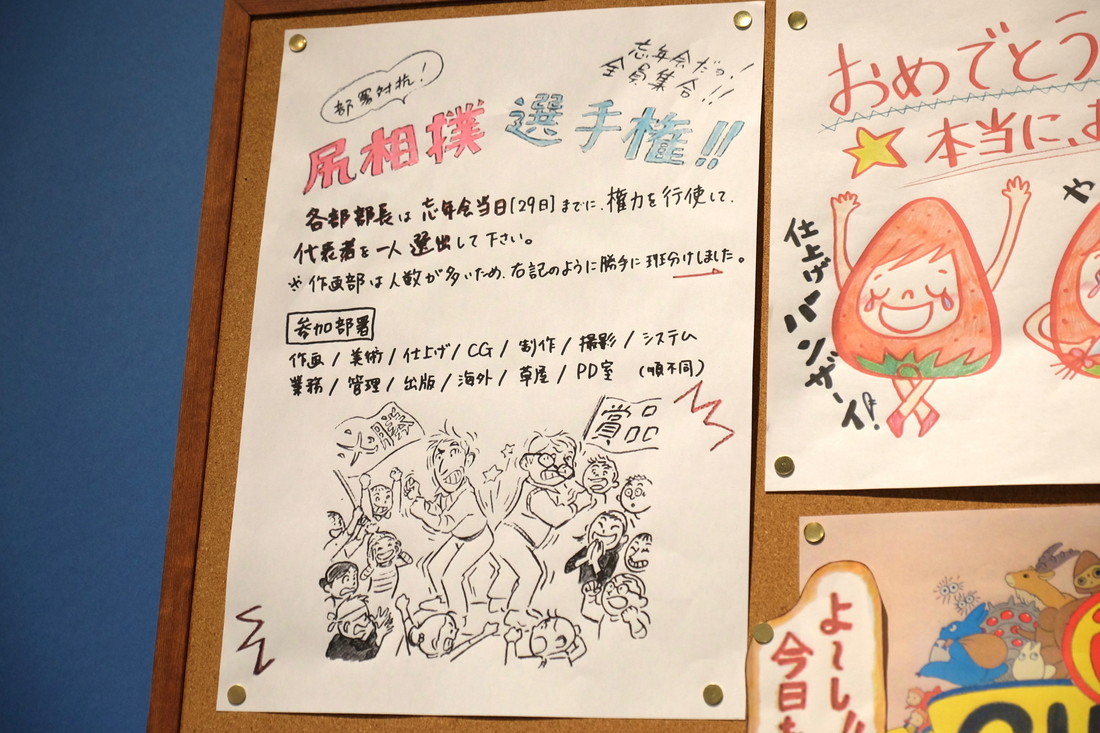 部署対抗!
忘年会だョ!
全員集合!!
尻相撲選手権!!
各部部長は忘年会当日[29日]までに、権力を行使して、
代表者を一人選出して下さい。
※作画部は人数が多いため、右記のように勝手に班分けしました。
参加部署
作画/美術/仕上げ/CG/制作/撮影/システム
業務/管理/出版/海外/草屋/PD室 (順不同)
勝
賞品
おめでとう
本当に、お
仕上げバンザーイ!
や
よ〜し!!
今日も